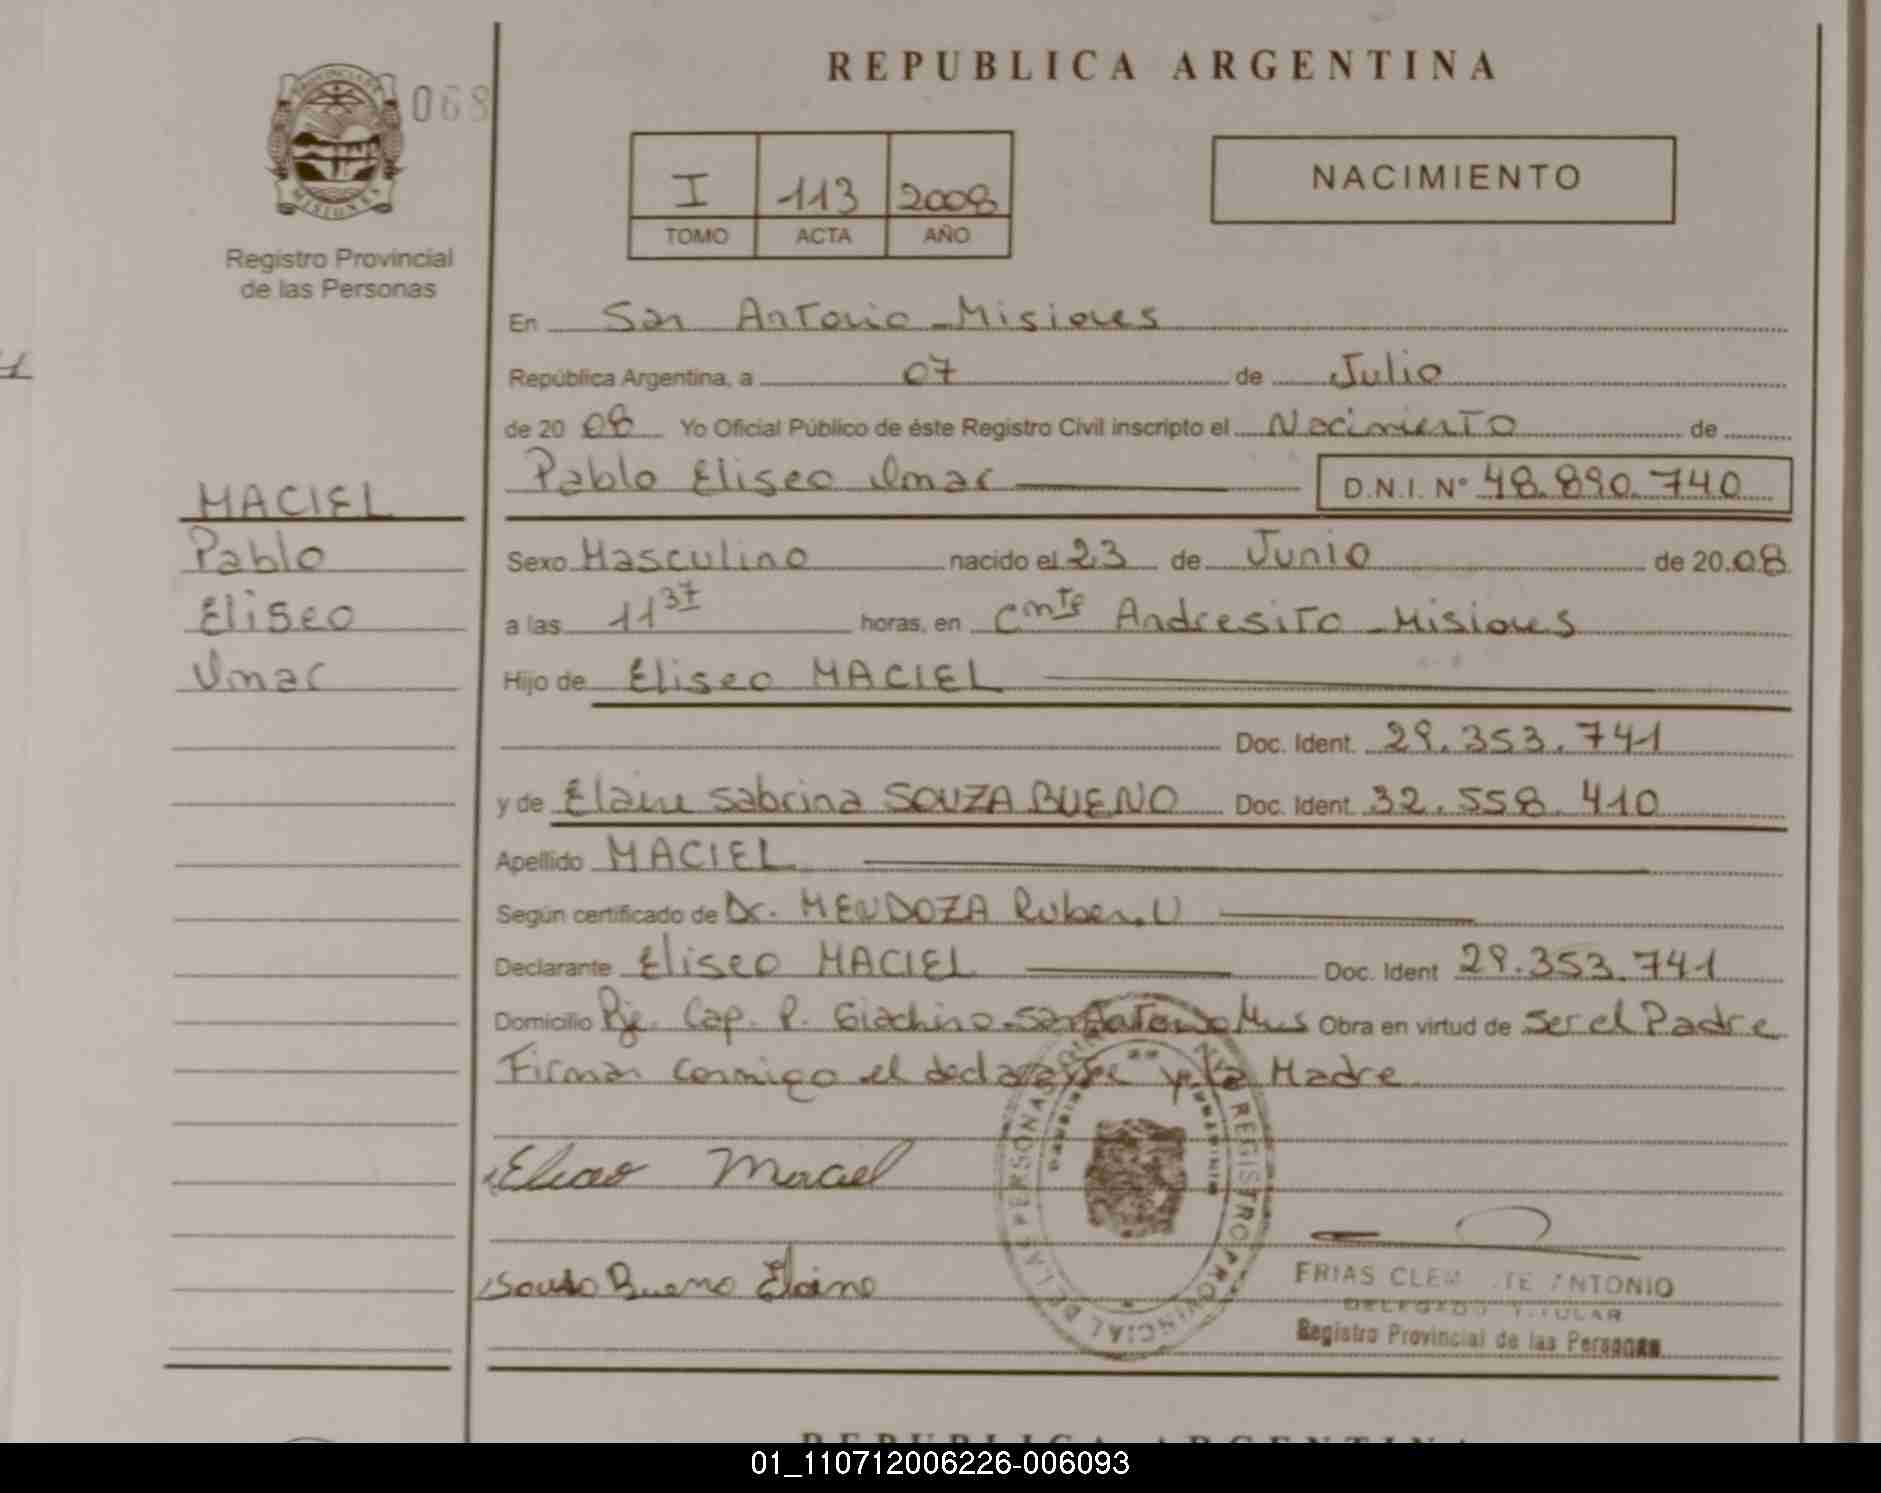 REPUBLICA ARGENTINA
PROVINCIA DE
MISIONES
068
Registro Provincial
de las Personas
I 113 2008
TOMO ACTA AÑO
NACIMIENTO
En San Antonio - Misiones
República Argentina, a 07 de Julio
de 20 08 Yo Oficial Público de éste Registro Civil inscripto el Nacimiento de
Pablo Eliseo Umac D.N.I. N° 48.890.740
MACIEL
Pablo
Eliseo
Umac
Sexo Masculino nacido el 23 de Junio de 20.08
a las 11 37 horas, en Cmte Andresito - Misiones
Hijo de Eliseo MACIEL
Doc. Ident. 29.353.741
y de Elaine Sabrina SOUZA BUENO Doc. Ident. 32.558.410
Apellido MACIEL
Según certificado de Dr. MENDOZA Ruben, U
Declarante Eliseo MACIEL Doc. Ident 29.353.741
Domicilio Pje. Cap. P. Giachino. San Antonio Mnes Obra en virtud de ser el Padre
Firman conmigo el declarante y la Madre
Eliseo Maciel
Souza Bueno Elaine
REGISTRO PROVINCIAL DE LAS PERSONAS
FRIAS CLEM TE ANTONIO
DELEGADO TITULAR
Registro Provincial de las Personas
REPUBLICA ARGENTINA
01_110712006226-006093